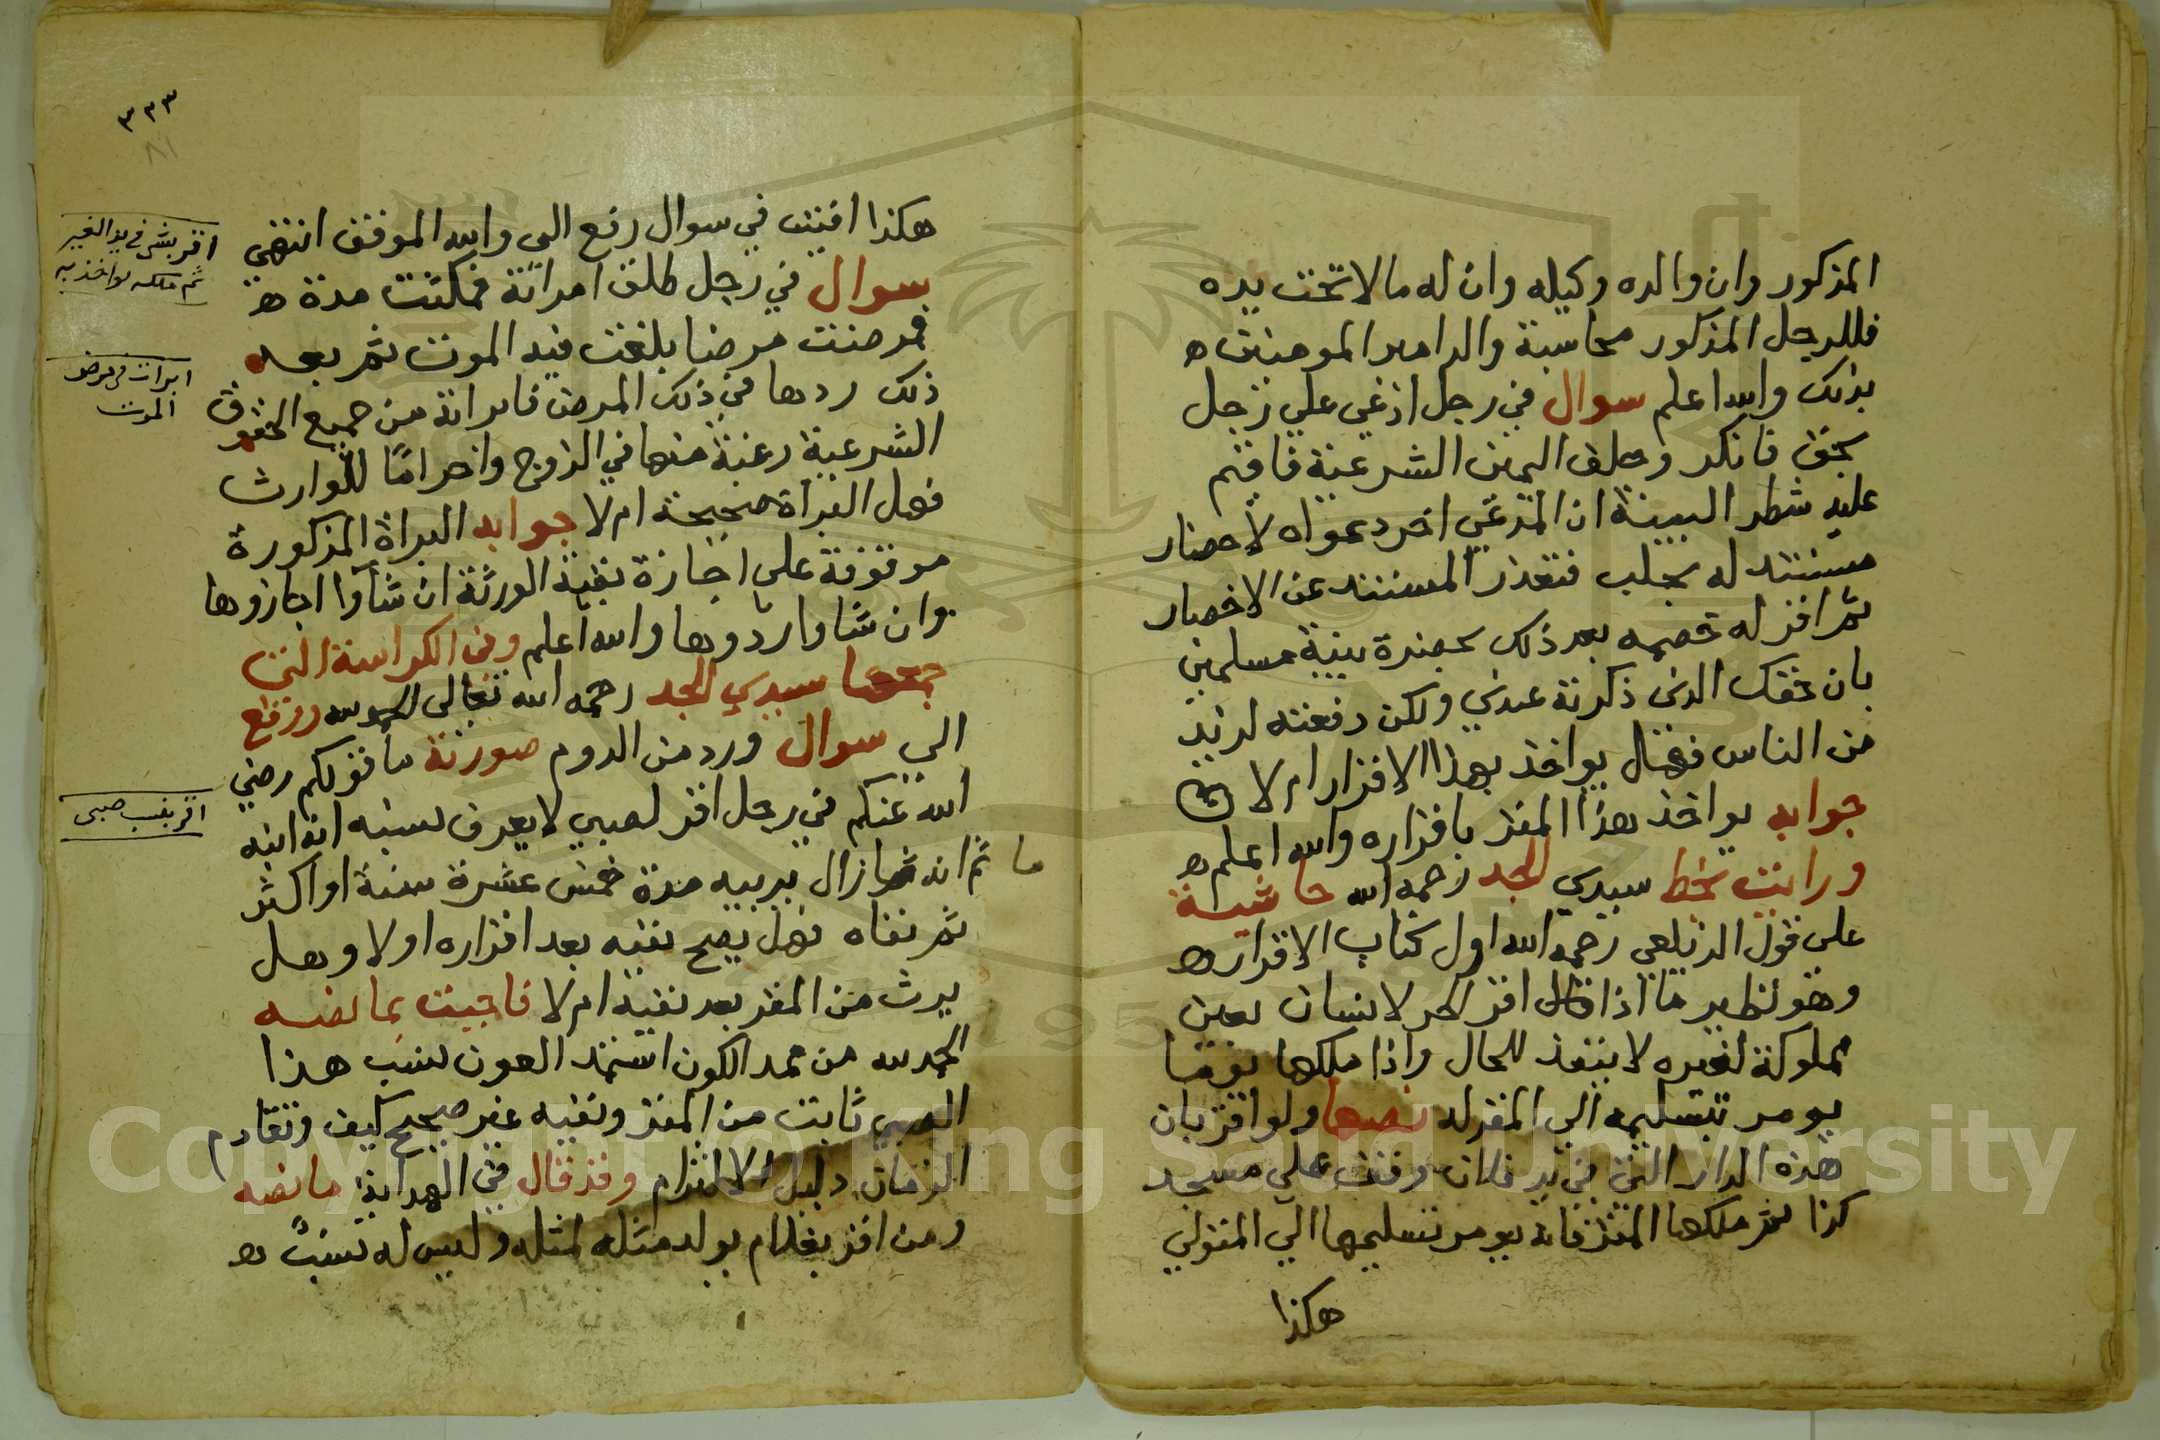 المذكور وان والده وكيله وان له مالا تحت يده
فللرجل المذكور محاسبة والد امير المومنين ه
بذلك والله اعلم سوال في رجل ادعي علي رجل
بحق فانكر وحلف اليمين الشرعية فاقيم
عليه شطر البينة ان المدعي اخر دعواه لاحضار
مستند له بحلب فتعذر المستند عن الاحضار
ثم اقر له خصمه بعد ذلك بحضرة بينة مسلمين
بان حقك الذي ذكرته عندي ولكن دفعته لزيد
من الناس فهل يواخذ بهذا الاقرار ام لا
جوابه يواخذ هذا المقر باقراره والله اعلم ه
ورايت بخط سيدي الجد رحمه الله حاشية
علي قول الزيلعي رحمه الله اول كتاب الاقرار ه
وهو نظير ما اذا اقر الحر لانسان بعين
مملوكة لغيره لا ينفذ للحال واذا ملكها يوما
يومر بتسليمه الي المقر له نصها ولو اقر بان
هذه الدار التي في يد فلان وقف علي مسجد
كذا ثم ملكها المقر فانه يومر بتسليمها الي المتولي
هكذا
٣٣٣
٨١
هكذا افتيت في سوال رفع الي والله الموفق انتهي
سوال في رجل طلق امراته فمكثت مدة ه
فمرضت مرضا بلغت فيه الموت ثم بعد
ذلك ردها في ذلك المرض فابراته من جميع الحقوق
الشرعية رغبة منها في الزوج واحراما للوارث
فهل البراة صحيحة ام لا جوابه البراة المذكورة
موقوفة علي اجازة بقية الورثة ان شاوا اجازوها
وان شاوا ردوها والله اعلم وفي الكراسة التي
جمعها سيدي الجد رحمه الله تعالي الحمد لله ورفع
الي سوال ورد من الروم صورته ما قولكم رضي
الله عنكم في رجل اقر لصبي لا يعرف نسبه انه ابنه
ثم انه ما زال يربيه مدة خمس عشرة سنة او اكثر
ثم نفاه فهل يصح نفيه بعد اقراره او لا وهل
يرث من المقر بعد نفيه ام لا فاجبت بما نصه
الحمد لله من ممد الكون استمد العون نسب هذا
الصبي ثابت من المقر ونفيه غير صحيح كيف وتقادم
الزمان دليل الالتزام وقد قال في الهداية ما نصه
ومن اقر بغلام يولد مثله لمثله وليس له نسب ه
اقر بشي في يد الغير
ثم ملكه يواخذ به
ابرات في مرض
الموت
اقر بنسب صبي